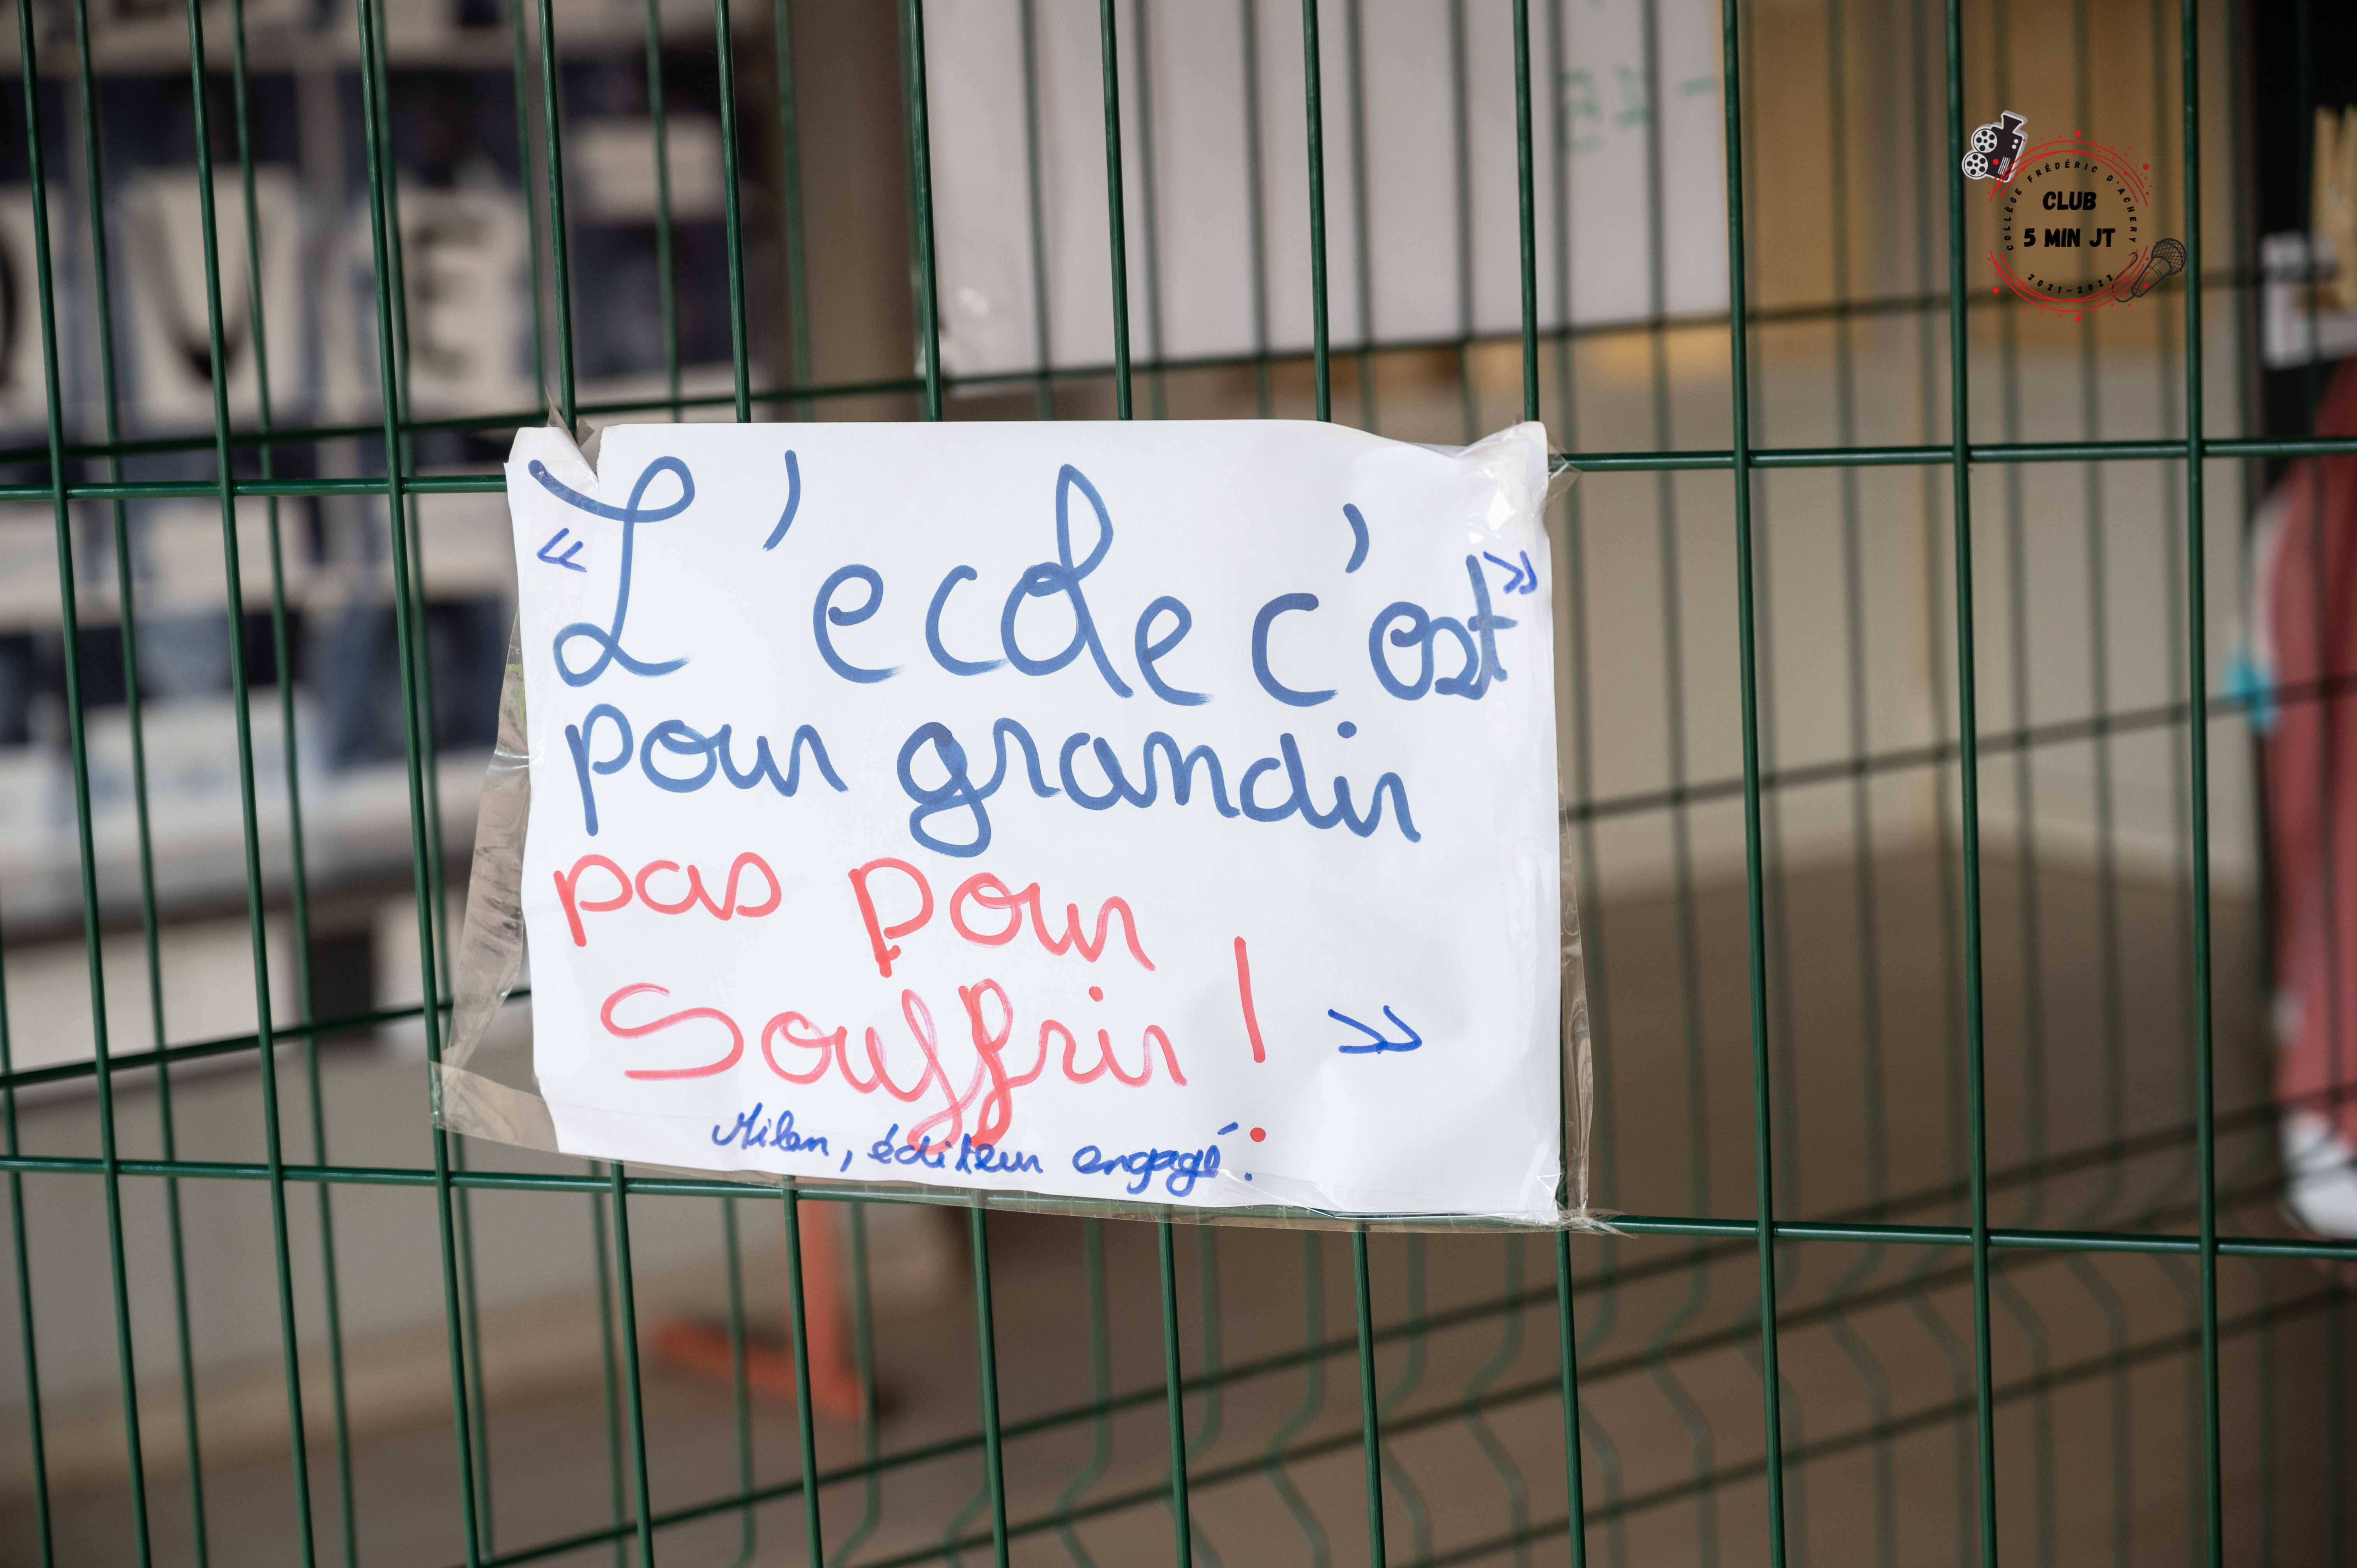 « L'ecole c'est »
pour grandir
pas pour
souffrir ! »
Milan, éditeur engagé.
COLLÈGE FRÉDÉRIC D'ACHERY
CLUB
5 MIN JT
2021-2022